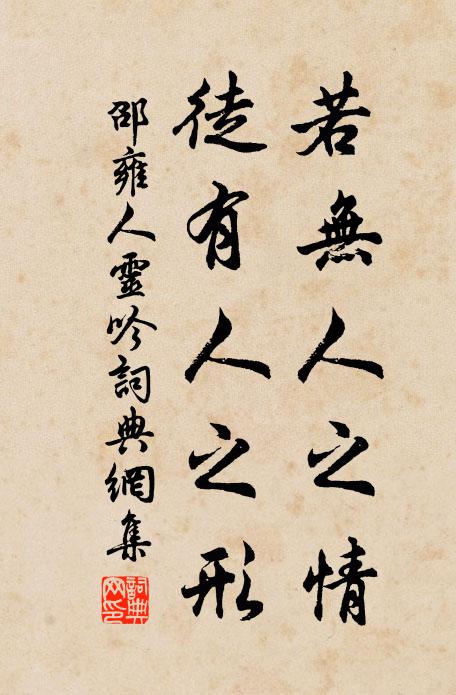 若無人之情
徒有人之形
邵雍人靈吟詞典網集
詞典
网印